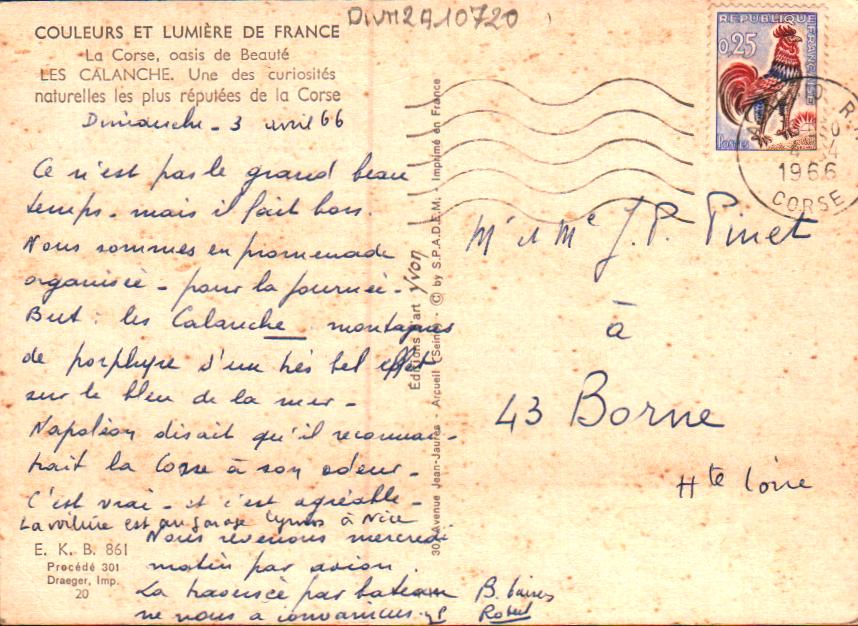 DIVM2A10720
COULEURS ET LUMIÈRE DE FRANCE
La Corse, oasis de Beauté
LES CALANCHE. Une des curiosités
naturelles les plus réputées de la Corse
Dimanche - 3 avril 66
Ce n'est pas le grand beau
temps - mais il fait bon.
Nous sommes en promenade
organisée - pour la journée -
But : les Calanche montagnes
de porphyre d'un très bel effet
sur le bleu de la mer -
Napoléon disait qu'il reconnai-
trait la Corse à son odeur -
C'est vrai - et c'est agréable -
La voiture est au garage à Nice
Nous revenons mercredi
matin par avion.
La traversée par bateau
ne nous a convaincus
B. baises
Robert
E. K. B. 861
Procédé 301
Draeger, Imp.
20
30, Avenue Jean-Jaurès - Arcueil (Seine) - © by S.P.A.D.E.M. - Imprimé en France
Éditions d'art yvon
REPUBLIQUE
FRANÇAISE
0,25
1966
CORSE
Mr et Me J. P. Pinet
à
43 Borne
Hte Loire